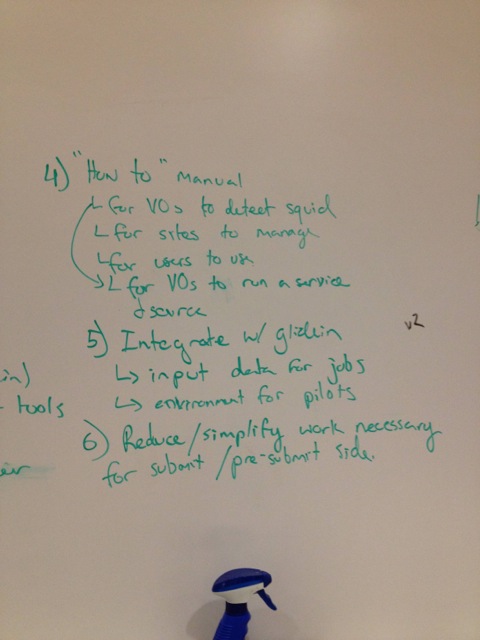 4) "How to" manual
↳ for VOs to detect squid
↳ for sites to manage
↳ for users to use
↳ for VOs to run a service
& source
5) Integrate w/ glidein
↳ input data for jobs
↳ environment for pilots
6) Reduce/simplify work necessary
for submit/pre-submit side.
v2
in)
tools